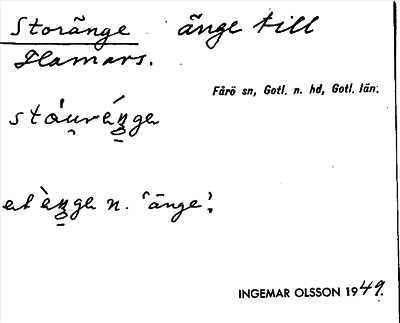 Storänge änge till
Hamars.
Fårö sn, Gotl. n. hd, Gotl. län.
stáurèngα
et èngα n. 'änge'.
INGEMAR OLSSON 1949.